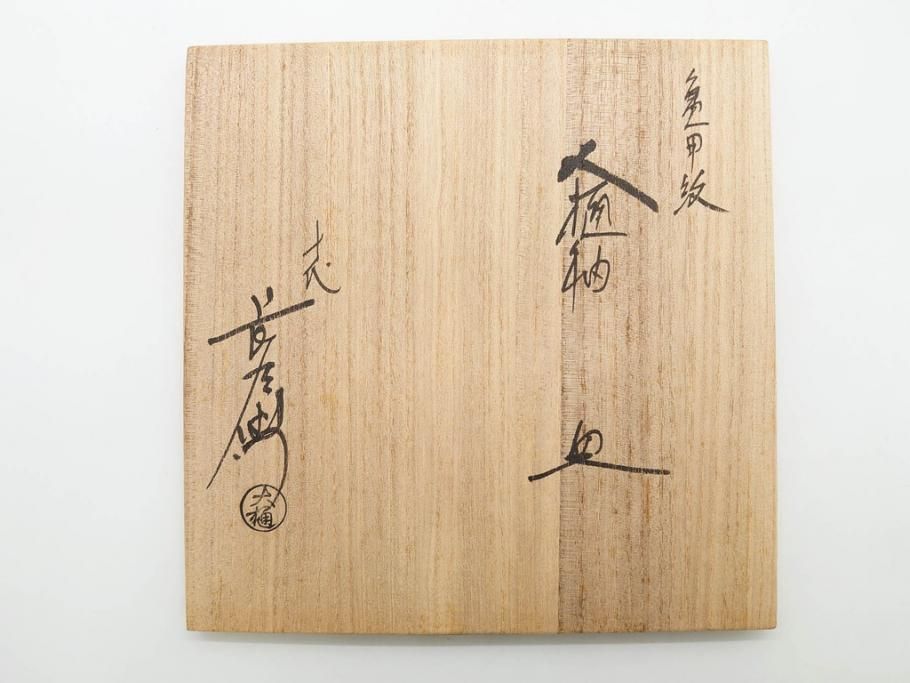 亀甲紋
大樋釉
皿
十代
長左衛門
大樋